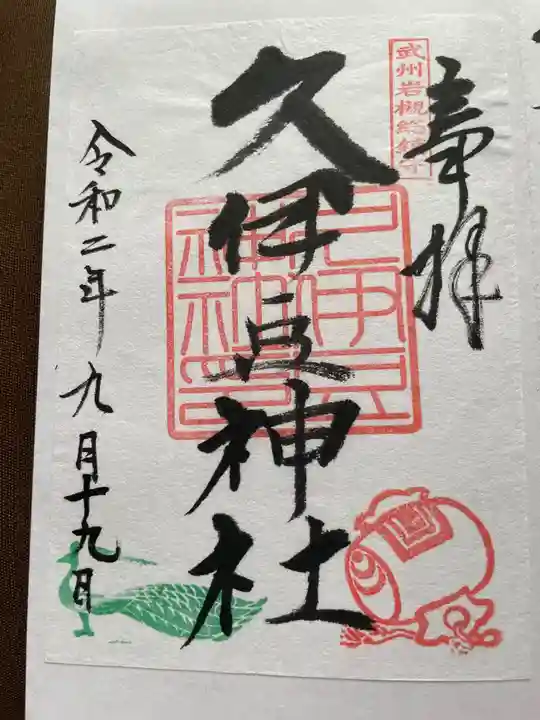 奉拝
武州岩槻総鎮守
久伊豆神社
令和二年九月十九日